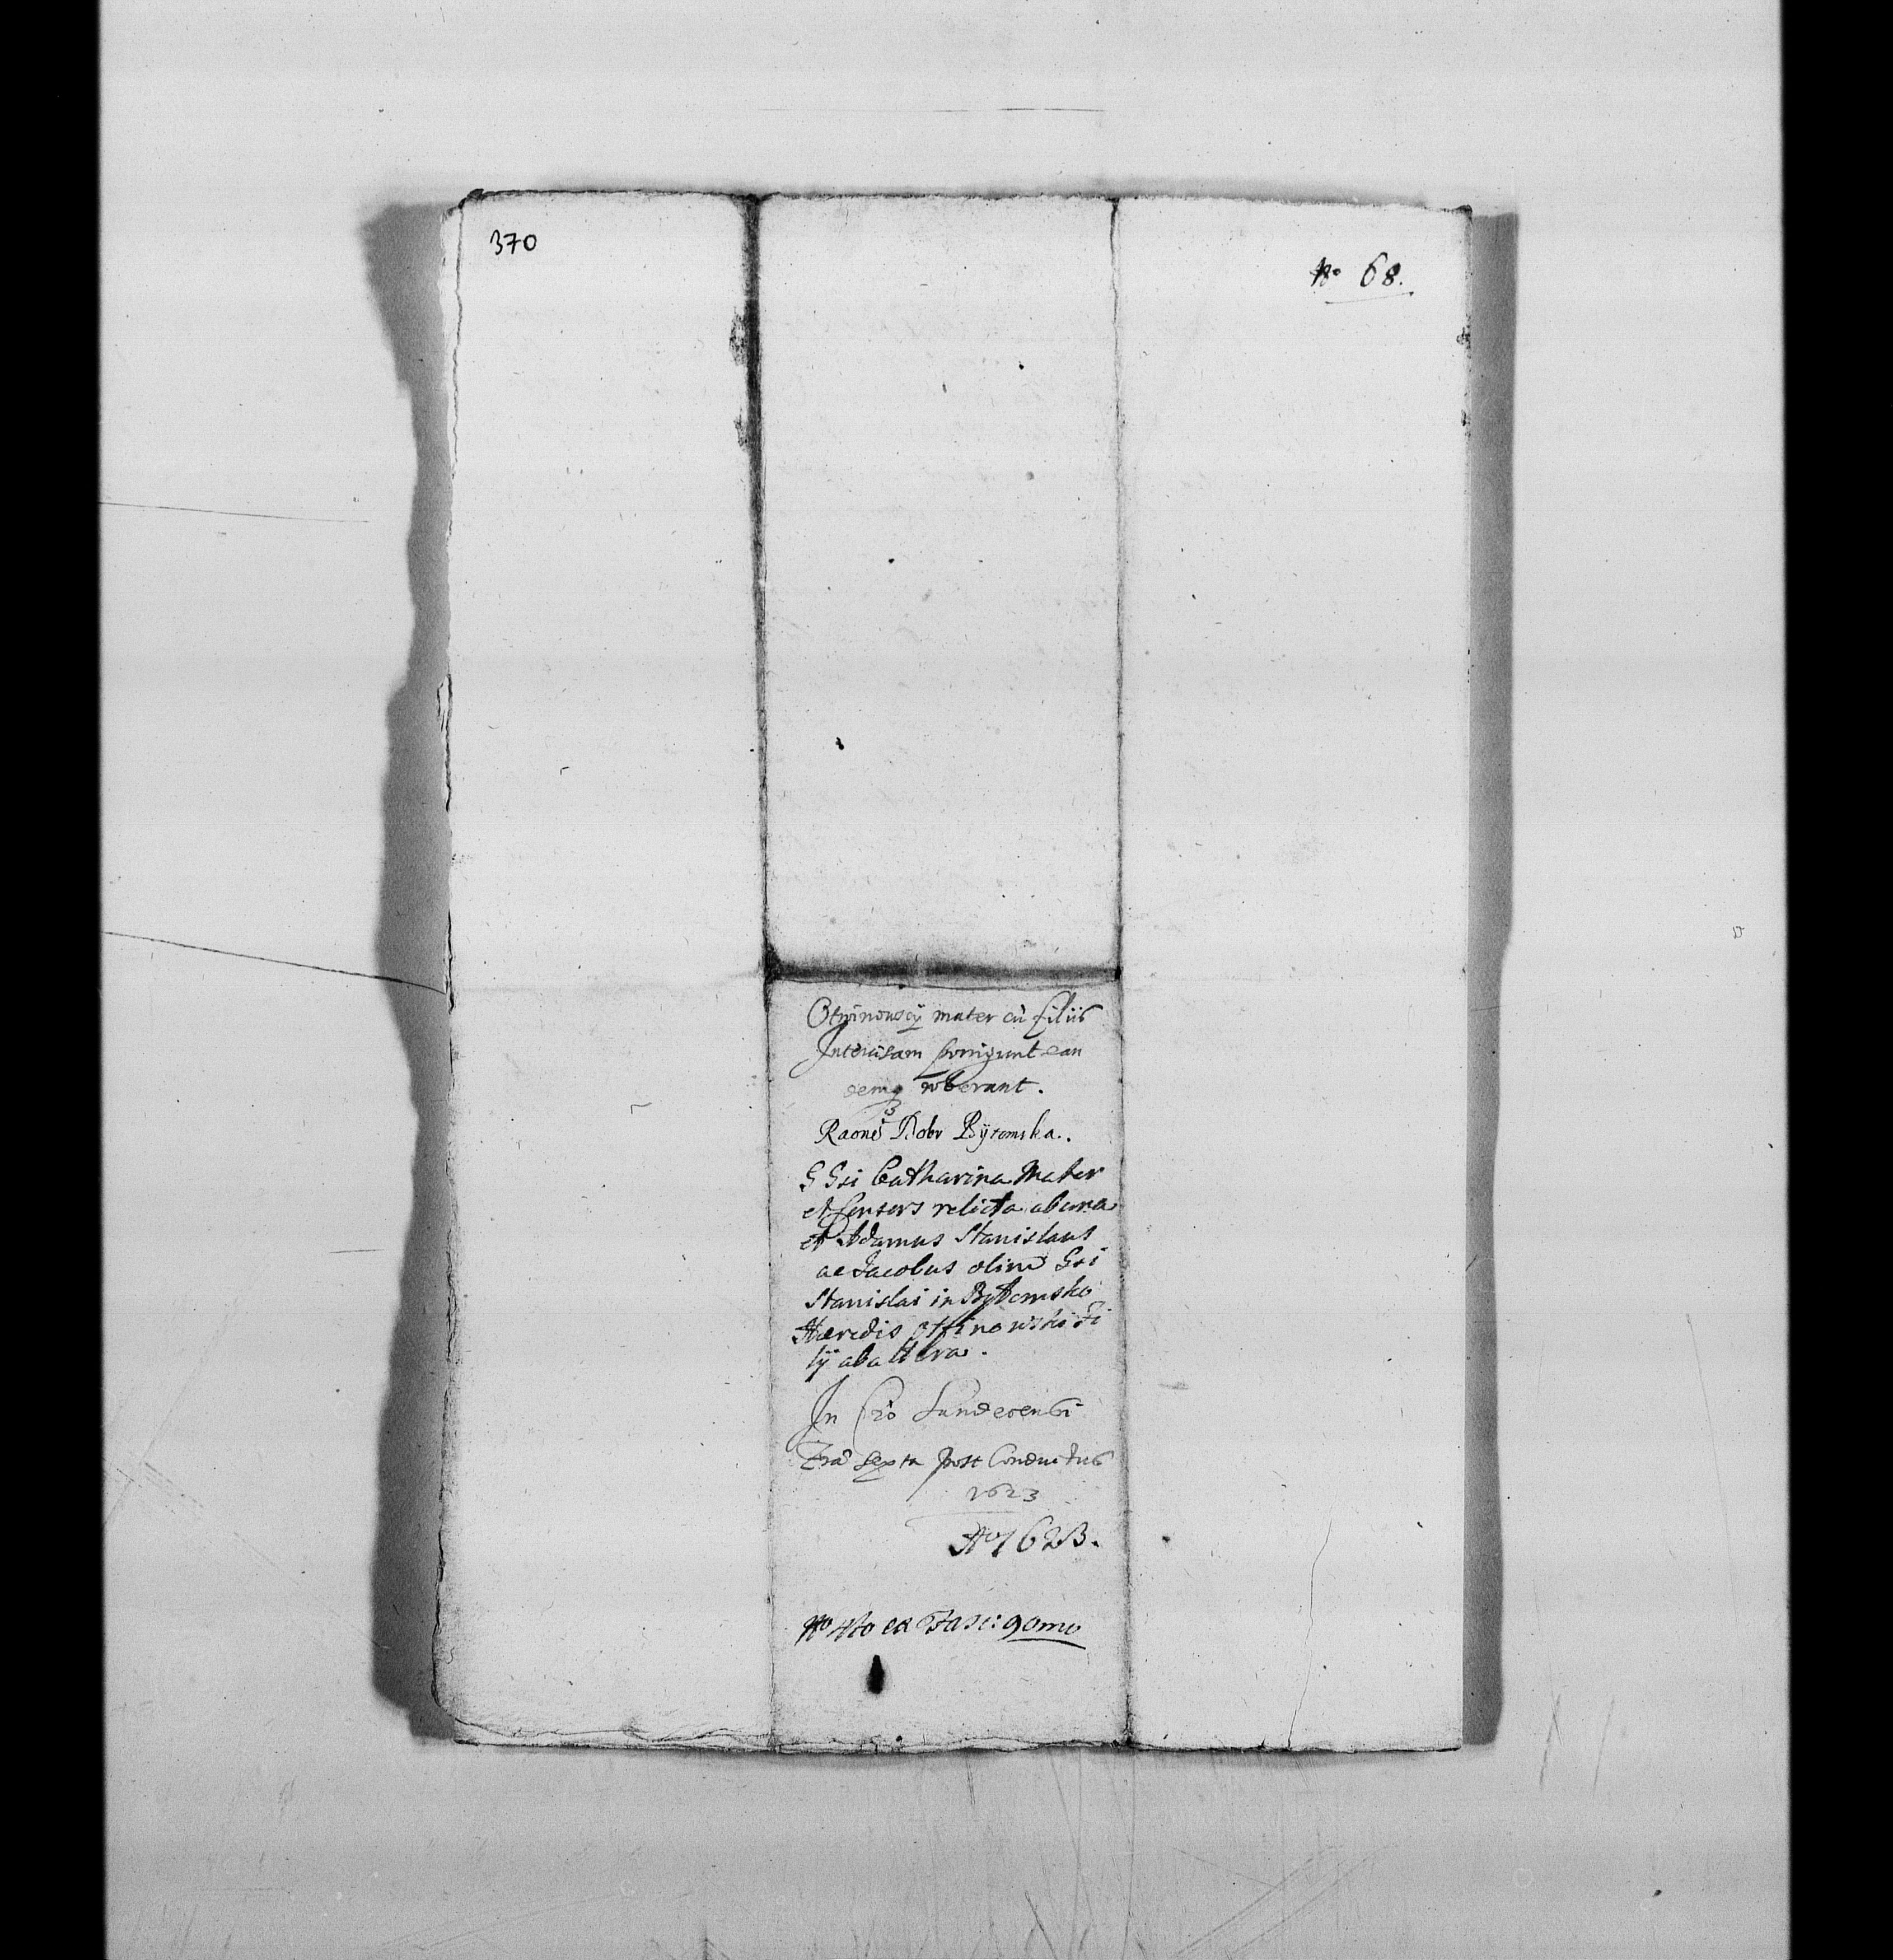 370
No 68.
Otwinowscÿ mater cũ filiis
Intercisam porrigunt ean
demq roborant.
Raone Dobr Bÿtomska.
G Gsi Catharina Mater
et Consors relicta ab una
et Adamus Stanislaus
ac Jacobus olim Gsi
Stanislai in Bytomsko
Hæredis Otfinowski Fi
lÿ ab altera.
In Cro Sandecensi
Fra Sexta post Conductus
1623
Ao 1623.
No 4to ex Fasc: 9omo